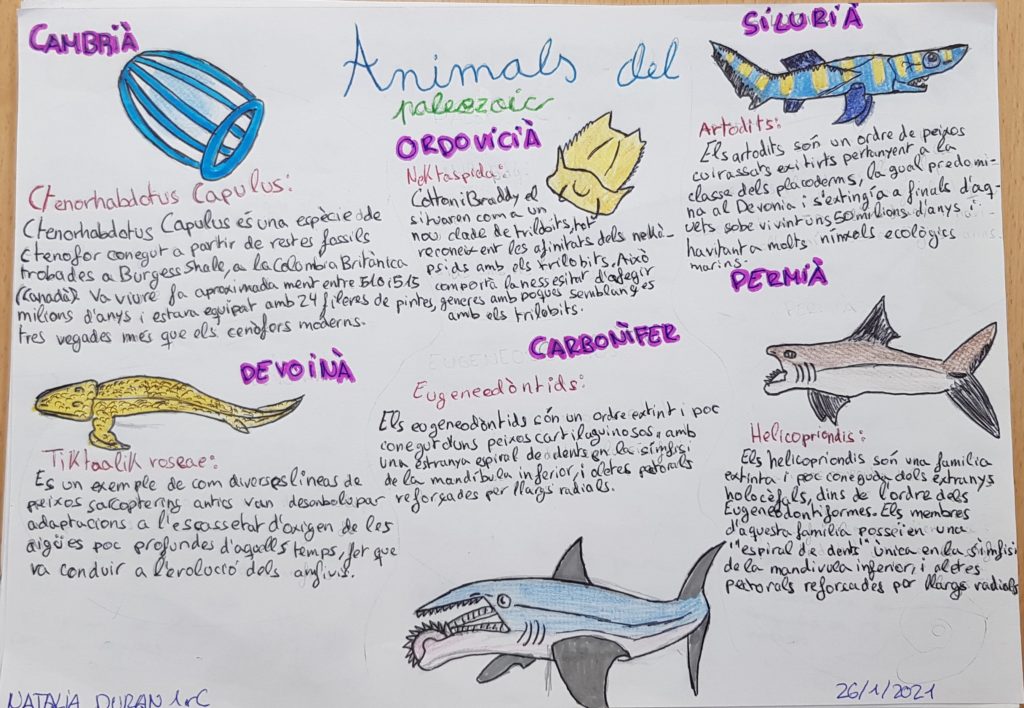 Animals del
paleozoic
CAMBRIÀ
Ctenorhabdotus Capulus:
Ctenorhabdotus Capulus és una espècie de
ctenofor conegut a partir de restes fossils
trobades a Burgess Shale, a la Colòmbia Britànica
(Canadà). Va viure fa aproximada ment entre 510 i 515
milions d'anys i estava equipat amb 24 fileres de pintes,
tres vegades més que els cenofors moderns.
ORDOVICIÀ
Nektaspida:
Cotton i Braddy el
situaren com a un
nou clade de trilobits, tot
reconeixent les afinitats dels nektà-
psids amb els trilobits. Això
comportà la nessesitat d'afegir
generes amb poques semblançes
amb els trilobits.
SILURIÀ
Artodits:
Els artodits són un ordre de peixos
cuirassats exitirts pertanyent a la
classe dels placoderms, la qual predomi-
na al Devonia i s'extingía a finals d'aq-
uets sobe vivint uns 50 milions d'anys i
havitant a molts nínxols ecològics
marins.
DEVOINÀ
Tiktaalik roseae:
És un exemple de com diverses líneas de
peixos sarcopterins antics van desenbolupar
adaptacions a l'escassetat d'oxigen de les
aigües poc profundes d'aqells temps, fet que
va conduir a l'evolucció dels anfivis.
CARBONÌFER
Eugeneodòntids:
Els eogeneodòntids són un ordre extint i poc
conegut d'uns peixos cartilaguinosos, amb
una estranya espiral de dents en la símfisi
de la mandíbula inferior, i aletes pectorals
reforsades per llargs radials.
PERMIÀ
Helicopriondis:
Els helicopriondis són una familia
extinta i poc coneguda dels extranys
holocèfals, dins de l'ordre dels
Eugeneodontiformes. Els membres
d'aquesta família posseien una
"espiral de dents" única en la símfisi
de la mandivola inferior, i aletes
pectorals reforçades por llargs radials
NATALIA DURAN 1rC
26/1/2021